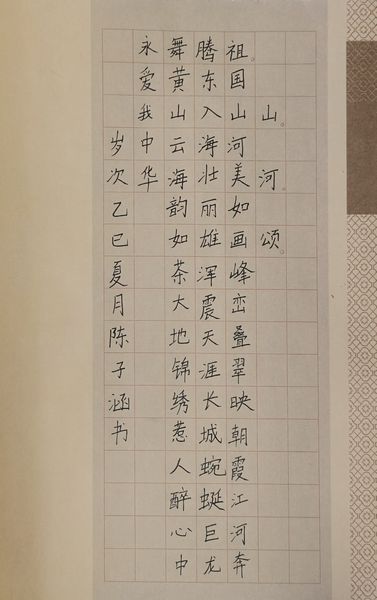 山。河。颂。
祖。国山河美如画峰峦叠翠映朝霞江河奔
腾东入海壮丽雄浑震天涯长城蜿蜒巨龙
舞黄山云海韵如茶大地锦绣惹人醉心中
永爱我中华
岁次乙巳夏月陈子涵书